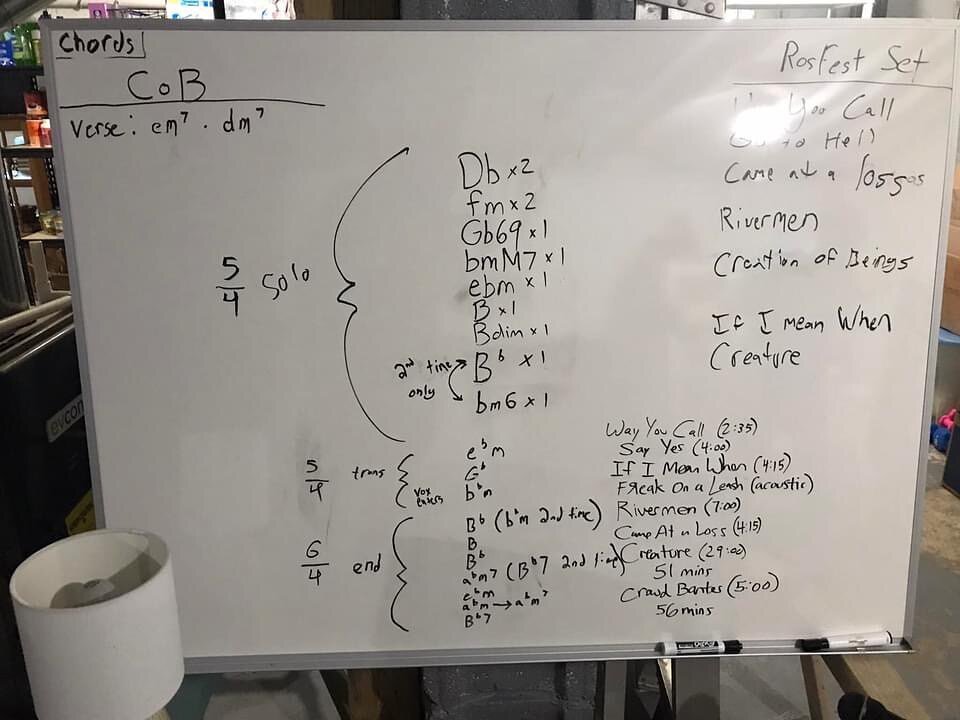 Chords
CoB
Verse: em⁷ · dm⁷
5/4 Solo
Db x2
fm x2
Gb69 x1
bmM7 x1
ebm x1
B x1
Bdim x1
2nd time only
Bᵇ x1
bm6 x1
5/4 trans
vox enters
eᵇm
Gᵇ
bᵇm
6/4 end
Bᵇ (bᵇm 2nd time)
B
Bᵇ
aᵇm7 (Bᵇ7 2nd time)
eᵇm
aᵇm → aᵇm⁷
Bᵇ7
RosFest Set
You Call
to Hell
Came at a loss
Rivermen
Creation of Beings
If I mean When
Creature
Way You Call (2:35)
Say Yes (4:00)
If I Mean When (4:15)
Freak On a Leash (acoustic)
Rivermen (7:00)
Came At a Loss (4:15)
Creature (29:00)
51 mins
Crowd Banter (5:00)
56 mins
evcon